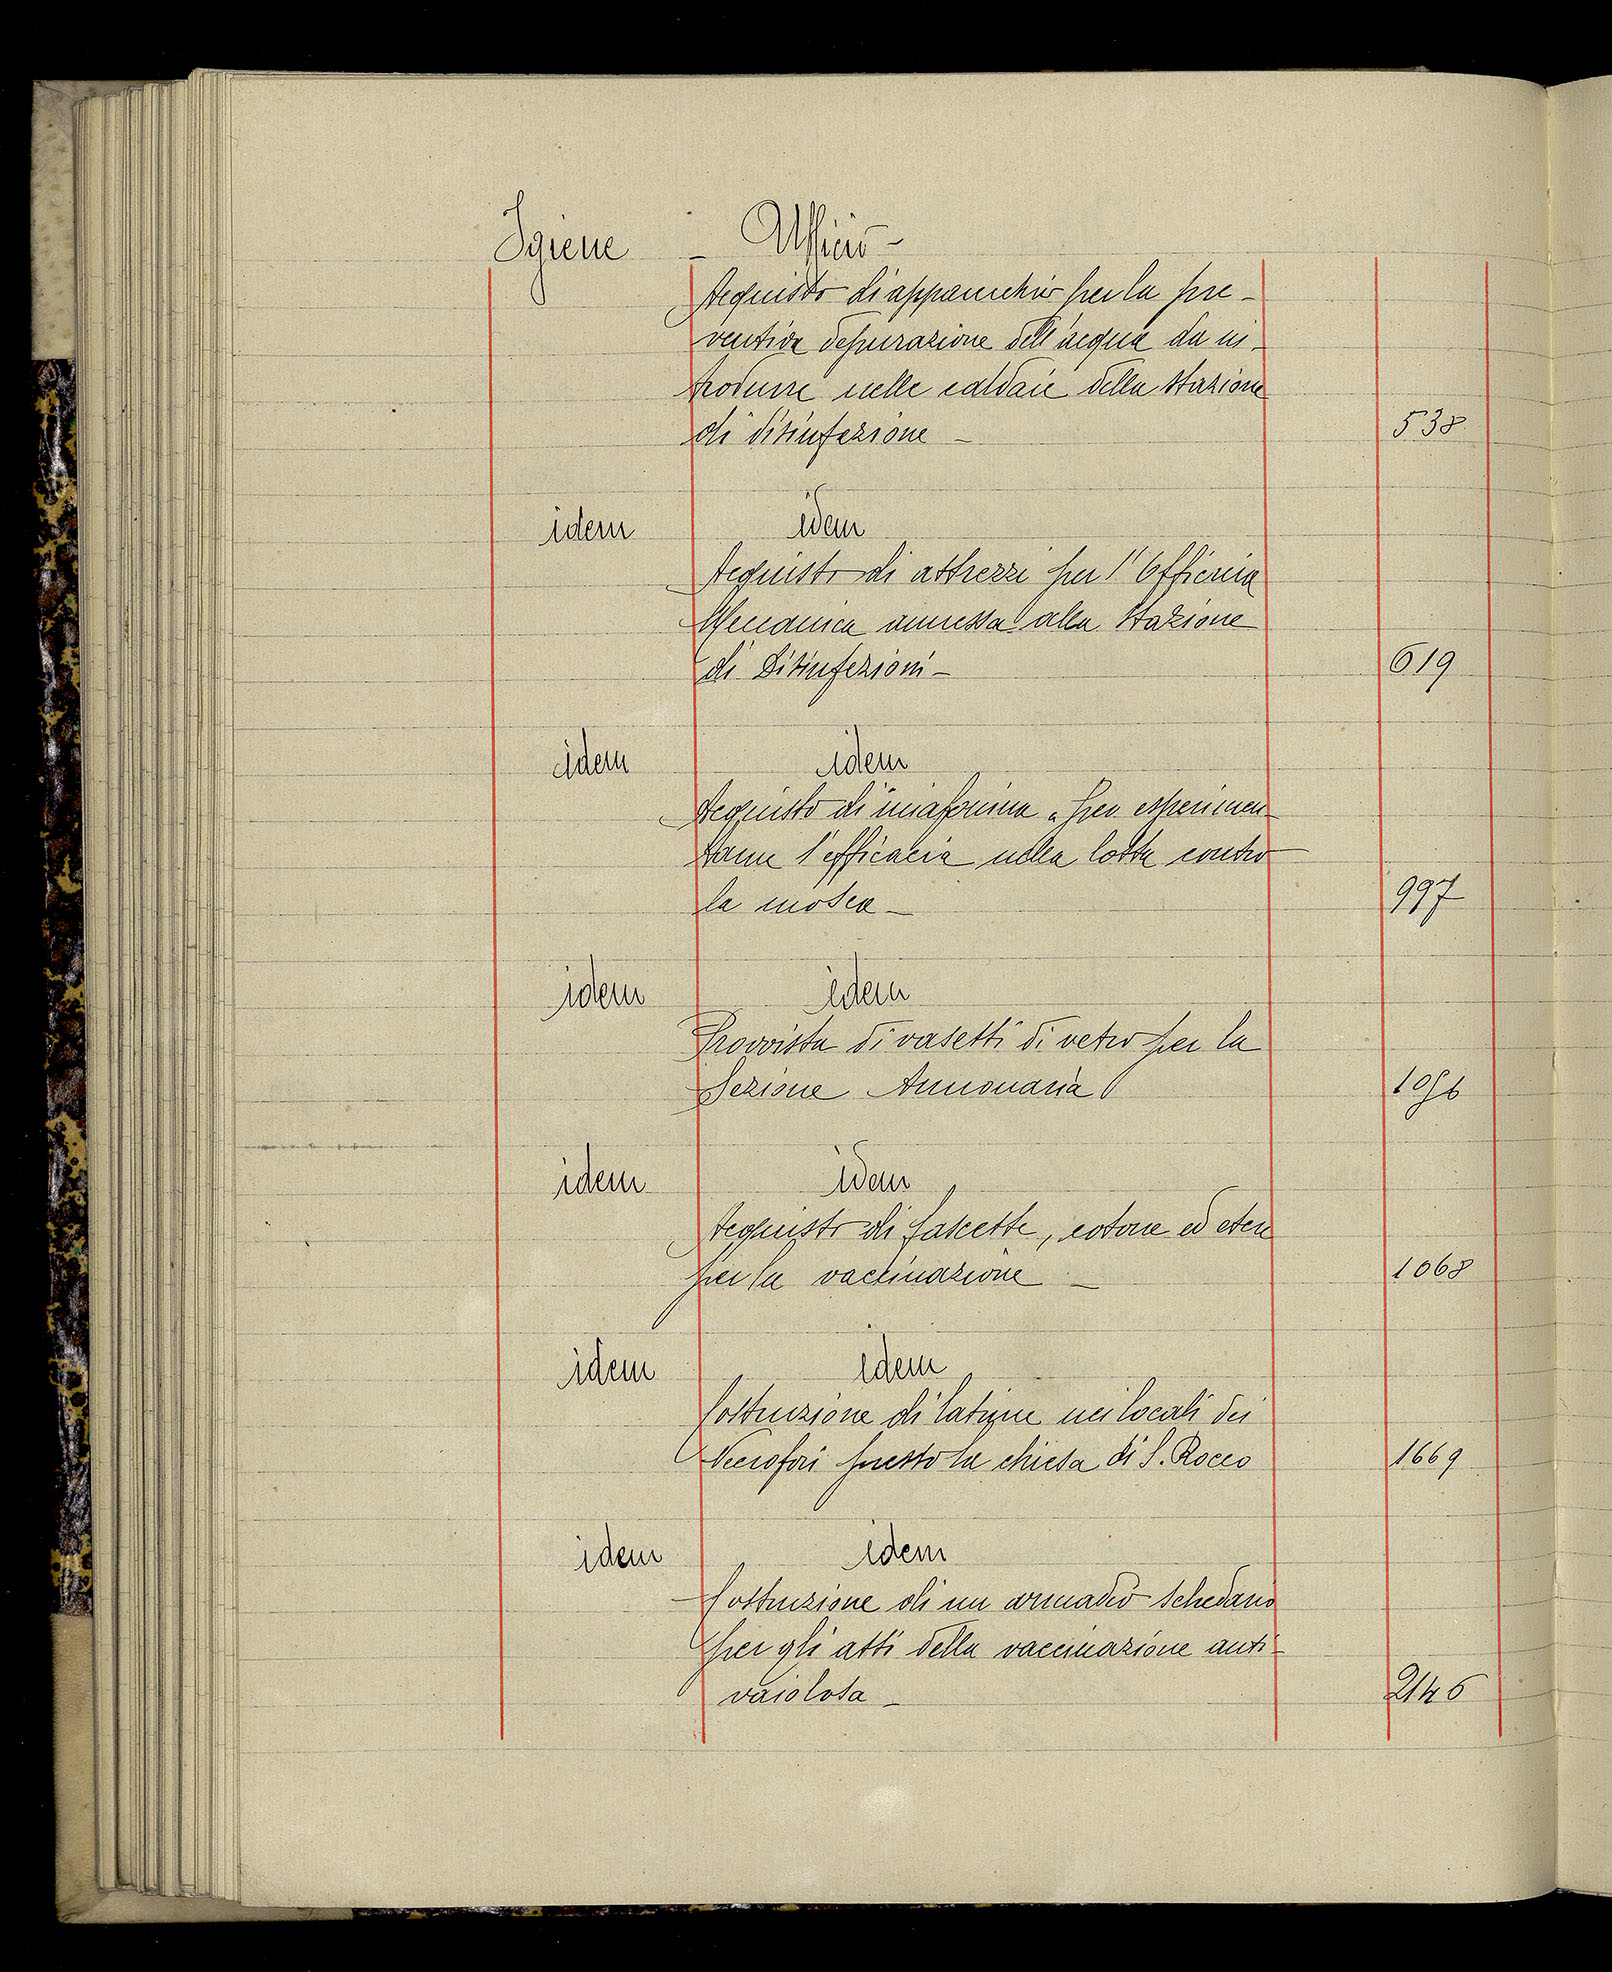 Igiene - Ufficio -
Acquisto di apparecchio per la pre-
ventiva depurazione dell'acqua da in-
trodurre nelle caldaie della Stazione
di disinfezione - 538
idem idem
Acquisto di attrezzi per l'Officina
Meccanica annessa alla Stazione
di Disinfezioni - 619
idem idem
Acquisto di "miafonina" per esperimen-
tarne l'efficacia nella lotta contro
la mosca - 997
idem idem
Provvista di vasetti di vetro per la
Sezione Annonaria
idem idem
Acquisto di fascette, cotone ed etere
per la vaccinazione - 1068
idem idem
Costruzione di latrine nei locali dei
Necrofori presso la chiesa di S. Rocco 1669
idem idem
Costruzione di un armadio schedario
per gli atti della vaccinazione anti-
vaiolosa - 2146